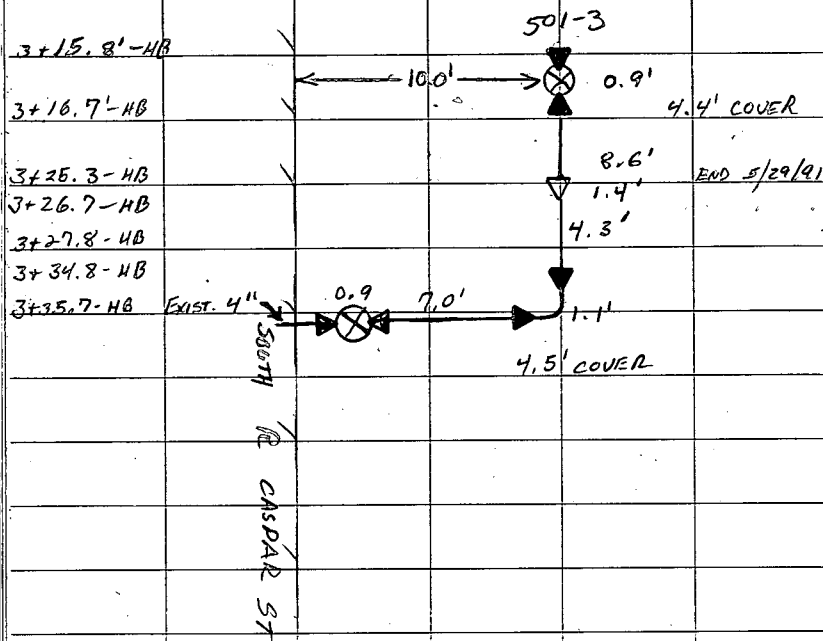 501-3
3+15.8'-HB
10.0' 0.9'
3+16.7'-HB 4.4' COVER
8.6'
3+25.3-HB END 5/29/91
1.4'
3+26.7-HB
4.3'
3+27.8-HB
3+34.8-HB
3+35.7-HB EXIST. 4" 0.9 7.0' 1.1'
4.5' COVER
SOUTH PL CASPAR ST